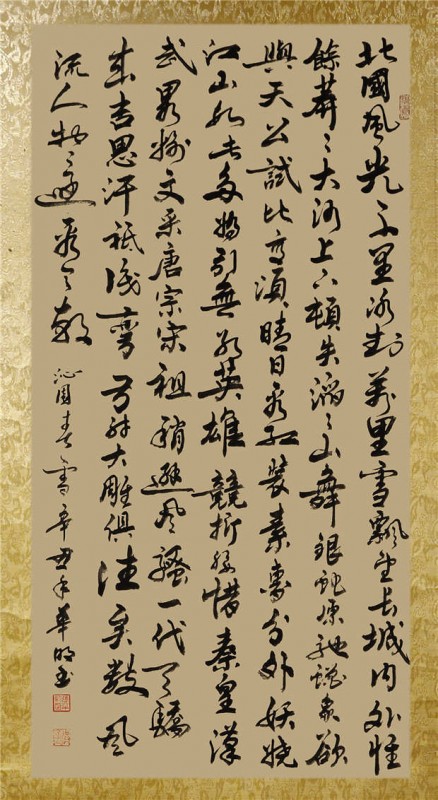 北國風光千里冰封萬里雪飄望長城內外惟
餘莽々大河上下頓失滔々山舞銀蛇原馳蠟象欲
與天公試比高須晴日看紅裝素裹分外妖嬈
江山如此多嬌引無數英雄競折腰惜秦皇漢
武略輸文采唐宗宋祖稍遜風騷一代天驕
成吉思汗衹識彎弓射大雕俱往矣數風
流人物還看今朝
沁園春雪辛丑年華明書